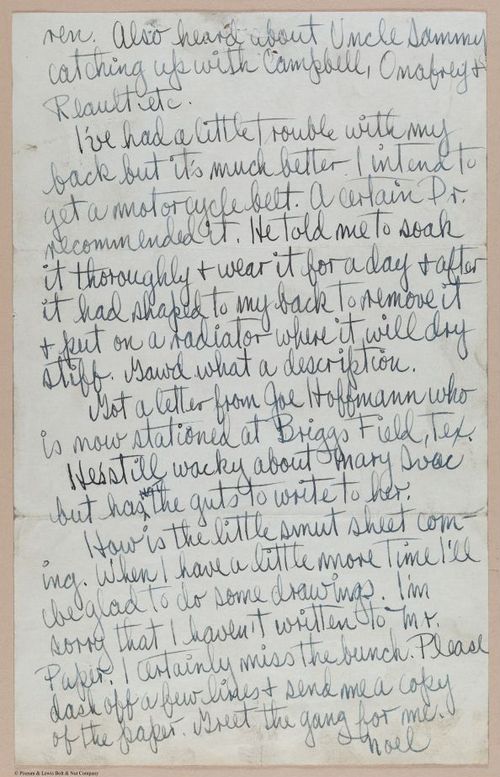 ren. Also heard about Uncle Sammy
catching up with Campbell, Onofrey &
Reault etc.
I've had a little trouble with my
back but it's much better. I intend to
get a motorcycle belt. A certain Dr.
recommended it. He told me to soak
it thoroughly & wear it for a day & after
it had shaped to my back to remove it
& put on a radiator where it will dry
stiff. Gawd what a description.
Got a letter from Joe Hoffmann who
is now stationed at Briggs Field, Tex.
He's still wacky about Mary
but has not the guts to write to her.
How is the little smut sheet com-
ing. When I have a little more time I'll
be glad to do some drawings. I'm
sorry that I haven't written to Mr.
Paper. I certainly miss the bunch. Please
dash off a few lines & send me a copy
of the paper. Greet the gang for me.
Noel
© Pheoll & Lewis Bolt & Nut Company